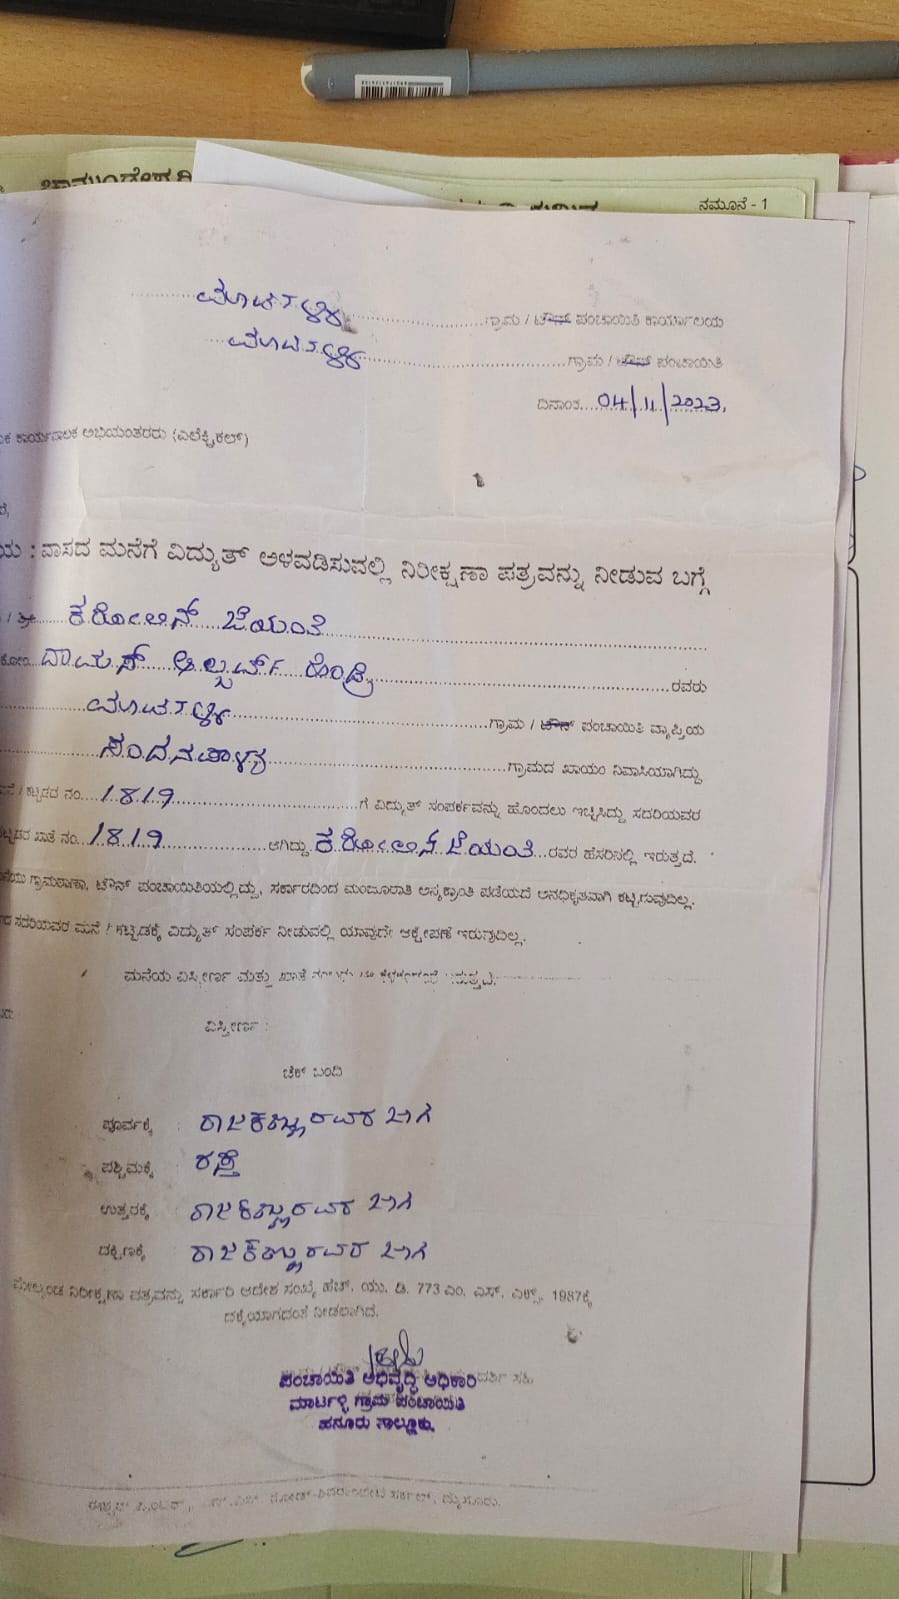 ನಮೂನೆ - 1
ಮಾರ್ಟಳ್ಳಿ ಗ್ರಾಮ / ಟೌನ್ ಪಂಚಾಯಿತಿ ಕಾರ್ಯಾಲಯ
ಮಾರ್ಟಳ್ಳಿ ಗ್ರಾಮ / ಟೌನ್ ಪಂಚಾಯಿತಿ
ದಿನಾಂಕ 04/11/2023.
ಕಾರ್ಯಪಾಲಕ ಅಭಿಯಂತರರು (ಎಲೆಕ್ಟ್ರಿಕಲ್)
ವಾಸದ ಮನೆಗೆ ವಿದ್ಯುತ್ ಅಳವಡಿಸುವಲ್ಲಿ ನಿರೀಕ್ಷಣಾ ಪತ್ರವನ್ನು ನೀಡುವ ಬಗ್ಗೆ
/ ಶ್ರೀ ಕರೋಲಿನ್ ಜೆಯಂತಿ
ಕೋಂ ಆಲ್ಬರ್ಟ್ ರವರು
ಮಾರ್ಟಳ್ಳಿ ಗ್ರಾಮ / ಟೌನ್ ಪಂಚಾಯಿತಿ ವ್ಯಾಪ್ತಿಯ
ಸಂದನಪಾಳ್ಯ ಗ್ರಾಮದ ಖಾಯಂ ನಿವಾಸಿಯಾಗಿದ್ದು
/ ಕಟ್ಟಡದ ನಂ. 1819 ಗೆ ವಿದ್ಯುತ್ ಸಂಪರ್ಕವನ್ನು ಹೊಂದಲು ಇಚ್ಛಿಸಿದ್ದು ಸದರಿಯವರ
ಖಾತೆ ನಂ. 1819 ಆಗಿದ್ದು ಕರೋಲಿನ್ ಜೆಯಂತಿ ರವರ ಹೆಸರಿನಲ್ಲಿ ಇರುತ್ತದೆ.
ಗ್ರಾಮಠಾಣಾ, ಟೌನ್ ಪಂಚಾಯಿತಿಯಲ್ಲಿದ್ದು, ಸರ್ಕಾರದಿಂದ ಮಂಜೂರಾತಿ ಪಡೆಯದೆ ಅನಧಿಕೃತವಾಗಿ
ಸದರಿಯವರ ಮನೆ / ಕಟ್ಟಡಕ್ಕೆ ವಿದ್ಯುತ್ ಸಂಪರ್ಕ ನೀಡುವಲ್ಲಿ ಯಾವುದೇ ಆಕ್ಷೇಪಣೆ ಇರುವುದಿಲ್ಲ.
ಮನೆಯ ವಿಸ್ತೀರ್ಣ ಮತ್ತು ಖಾತೆ
ವಿಸ್ತೀರ್ಣ :
ಚೆಕ್ ಬಂದಿ
ಪೂರ್ವಕ್ಕೆ : ರಾಜಕಣ್ಣುರವರ ಜಾಗ
ಪಶ್ಚಿಮಕ್ಕೆ ರಸ್ತೆ
ಉತ್ತರಕ್ಕೆ ರಾಜಕಣ್ಣುರವರ ಜಾಗ
ದಕ್ಷಿಣಕ್ಕೆ ರಾಜಕಣ್ಣುರವರ ಜಾಗ
ಮೇಲ್ಕಂಡ ನಿರೀಕ್ಷಣಾ ಪತ್ರವನ್ನು ಸರ್ಕಾರಿ ಆದೇಶ ಸಂಖ್ಯೆ ಹೆಚ್. ಯು. ಡಿ. 773 ಎಂ. ಎನ್. ಎಕ್ಸ್. 1987ಕ್ಕೆ
ದಕ್ಕೆಯಾಗದಂತೆ ನೀಡಲಾಗಿದೆ.
ಪಂಚಾಯಿತಿ ಅಭಿವೃದ್ಧಿ ಅಧಿಕಾರಿ
ಮಾರ್ಟಳ್ಳಿ ಗ್ರಾಮ ಪಂಚಾಯಿತಿ
ಹನೂರು ತಾಲ್ಲೂಕು.
ಸರ್ಕಲ್, ಮೈಸೂರು.